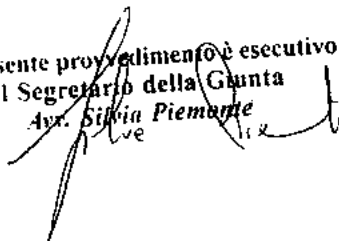 sente provvedimento è esecutivo
l Segretario della Giunta
Avv. Silvia Piemonte